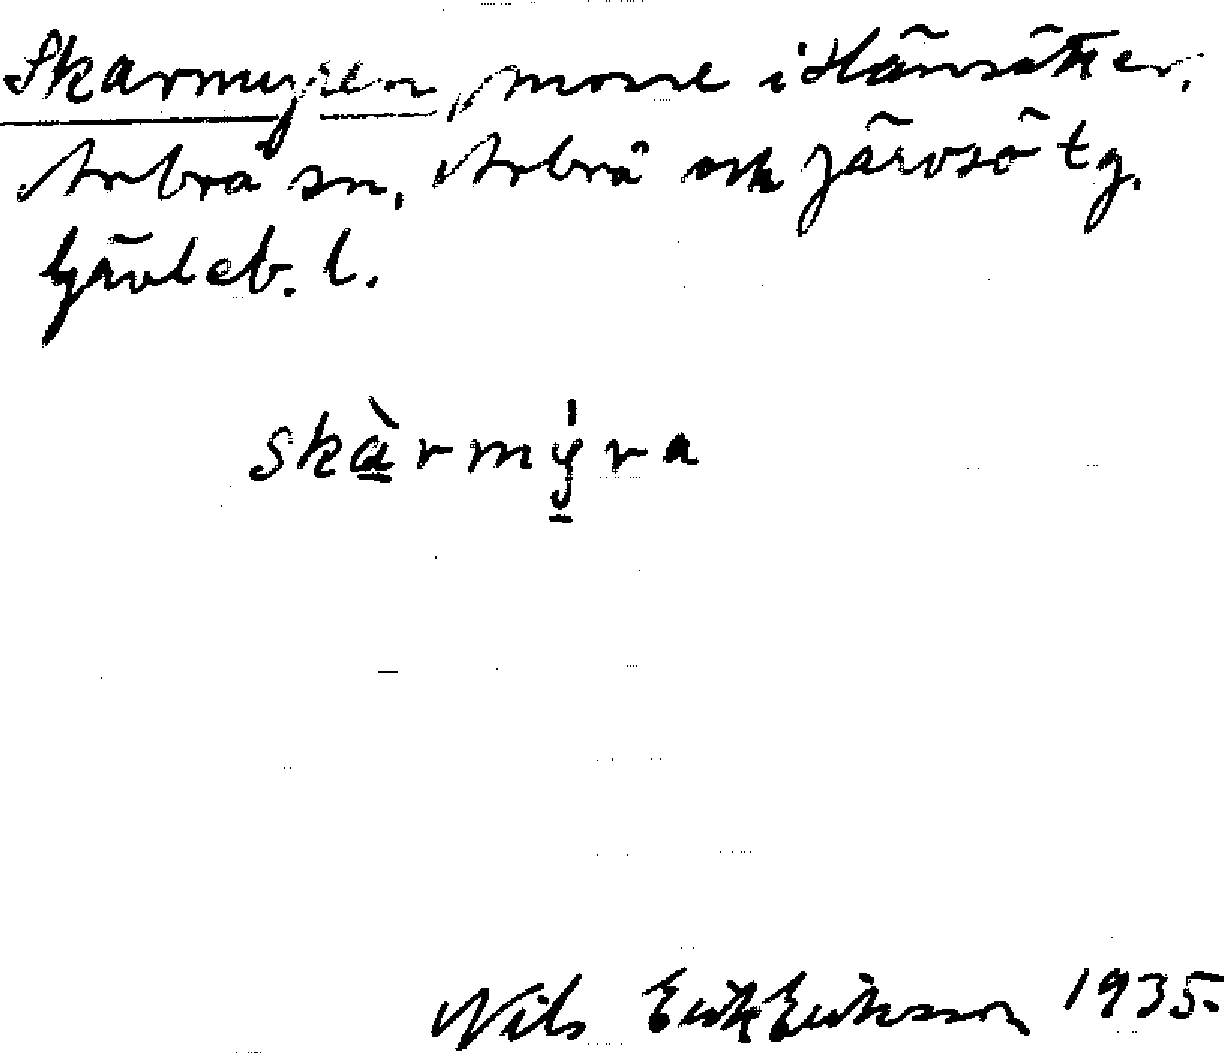 Skarmyren, mosse i Hänsätter,
Arbrå sn, Arbrå och Järvsö tg.
Gävleb. l.
skàrmýra
Nils Erik Eriksson 1935.